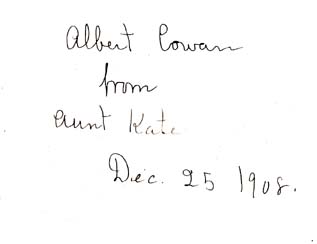 Albert Cowan
from
Aunt Kate
Dec. 25 1908.